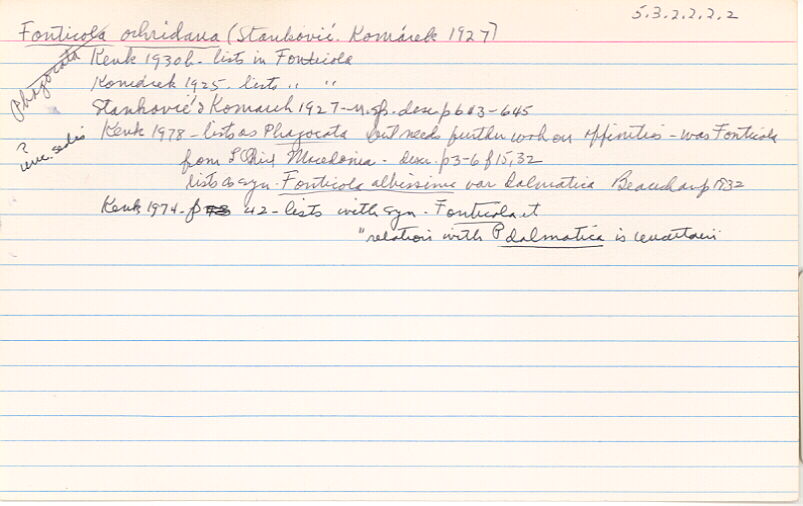 5.3.2.2.2.2
Fonticola ochridana (Stanković. Komárek 1927)
Phagocata
? ince. sedis
Kenk 1930b - lists in Fonticola
Komárek 1925 - lists " "
Stanković & Komarek 1927 - n. sp. desc. p 603 - 645
Kenk 1978 - lists as Phagocata but needs further work on affinities - was Fonticola
from L. Macedonia - descr. p 3-6 f 15, 32
lists as syn. Fonticola albissima var dalmatica Beauchamp 1932
Kenk 1974 - p 42 - lists with syn. Fonticola et
"relation with P dalmatica is uncertain